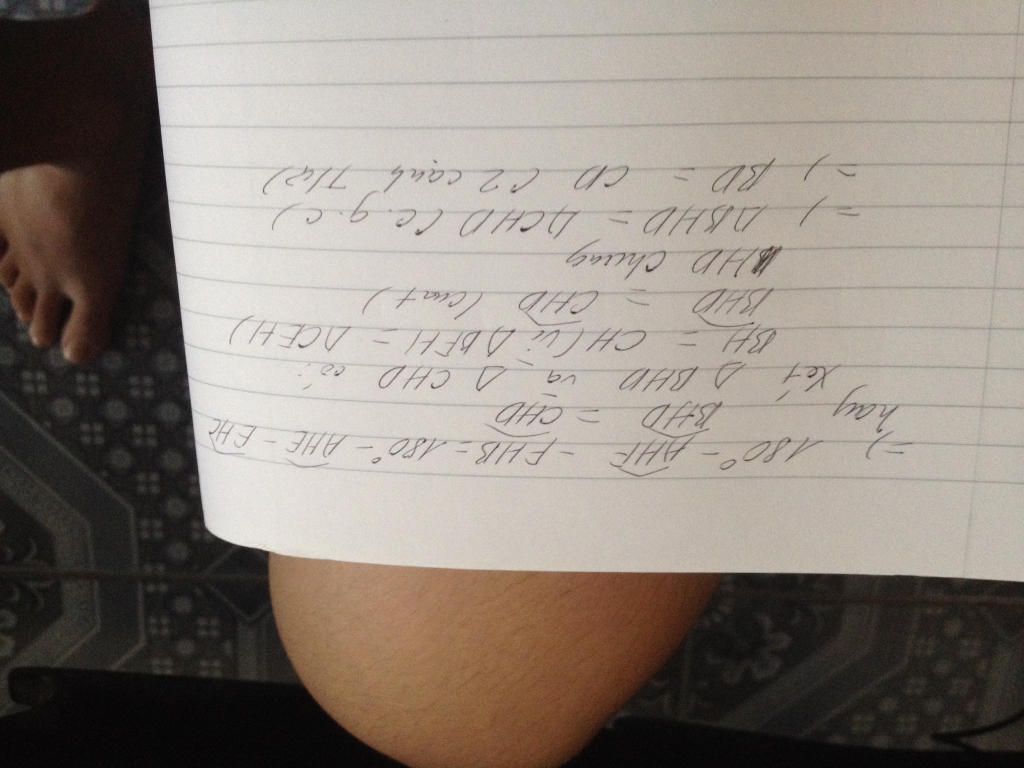 =) 180° - AHF - FHB = 180° - AHE - EHC
hay BHD = CHD
Xét Δ BHD và Δ CHD có:
BH = CH (vì Δ BFH = Δ CEH)
BHD = CHD (cmt)
HD chung
=) ΔBHD = ΔCHD (c.g.c)
=) BD = CD (2 cạnh T/ứ)